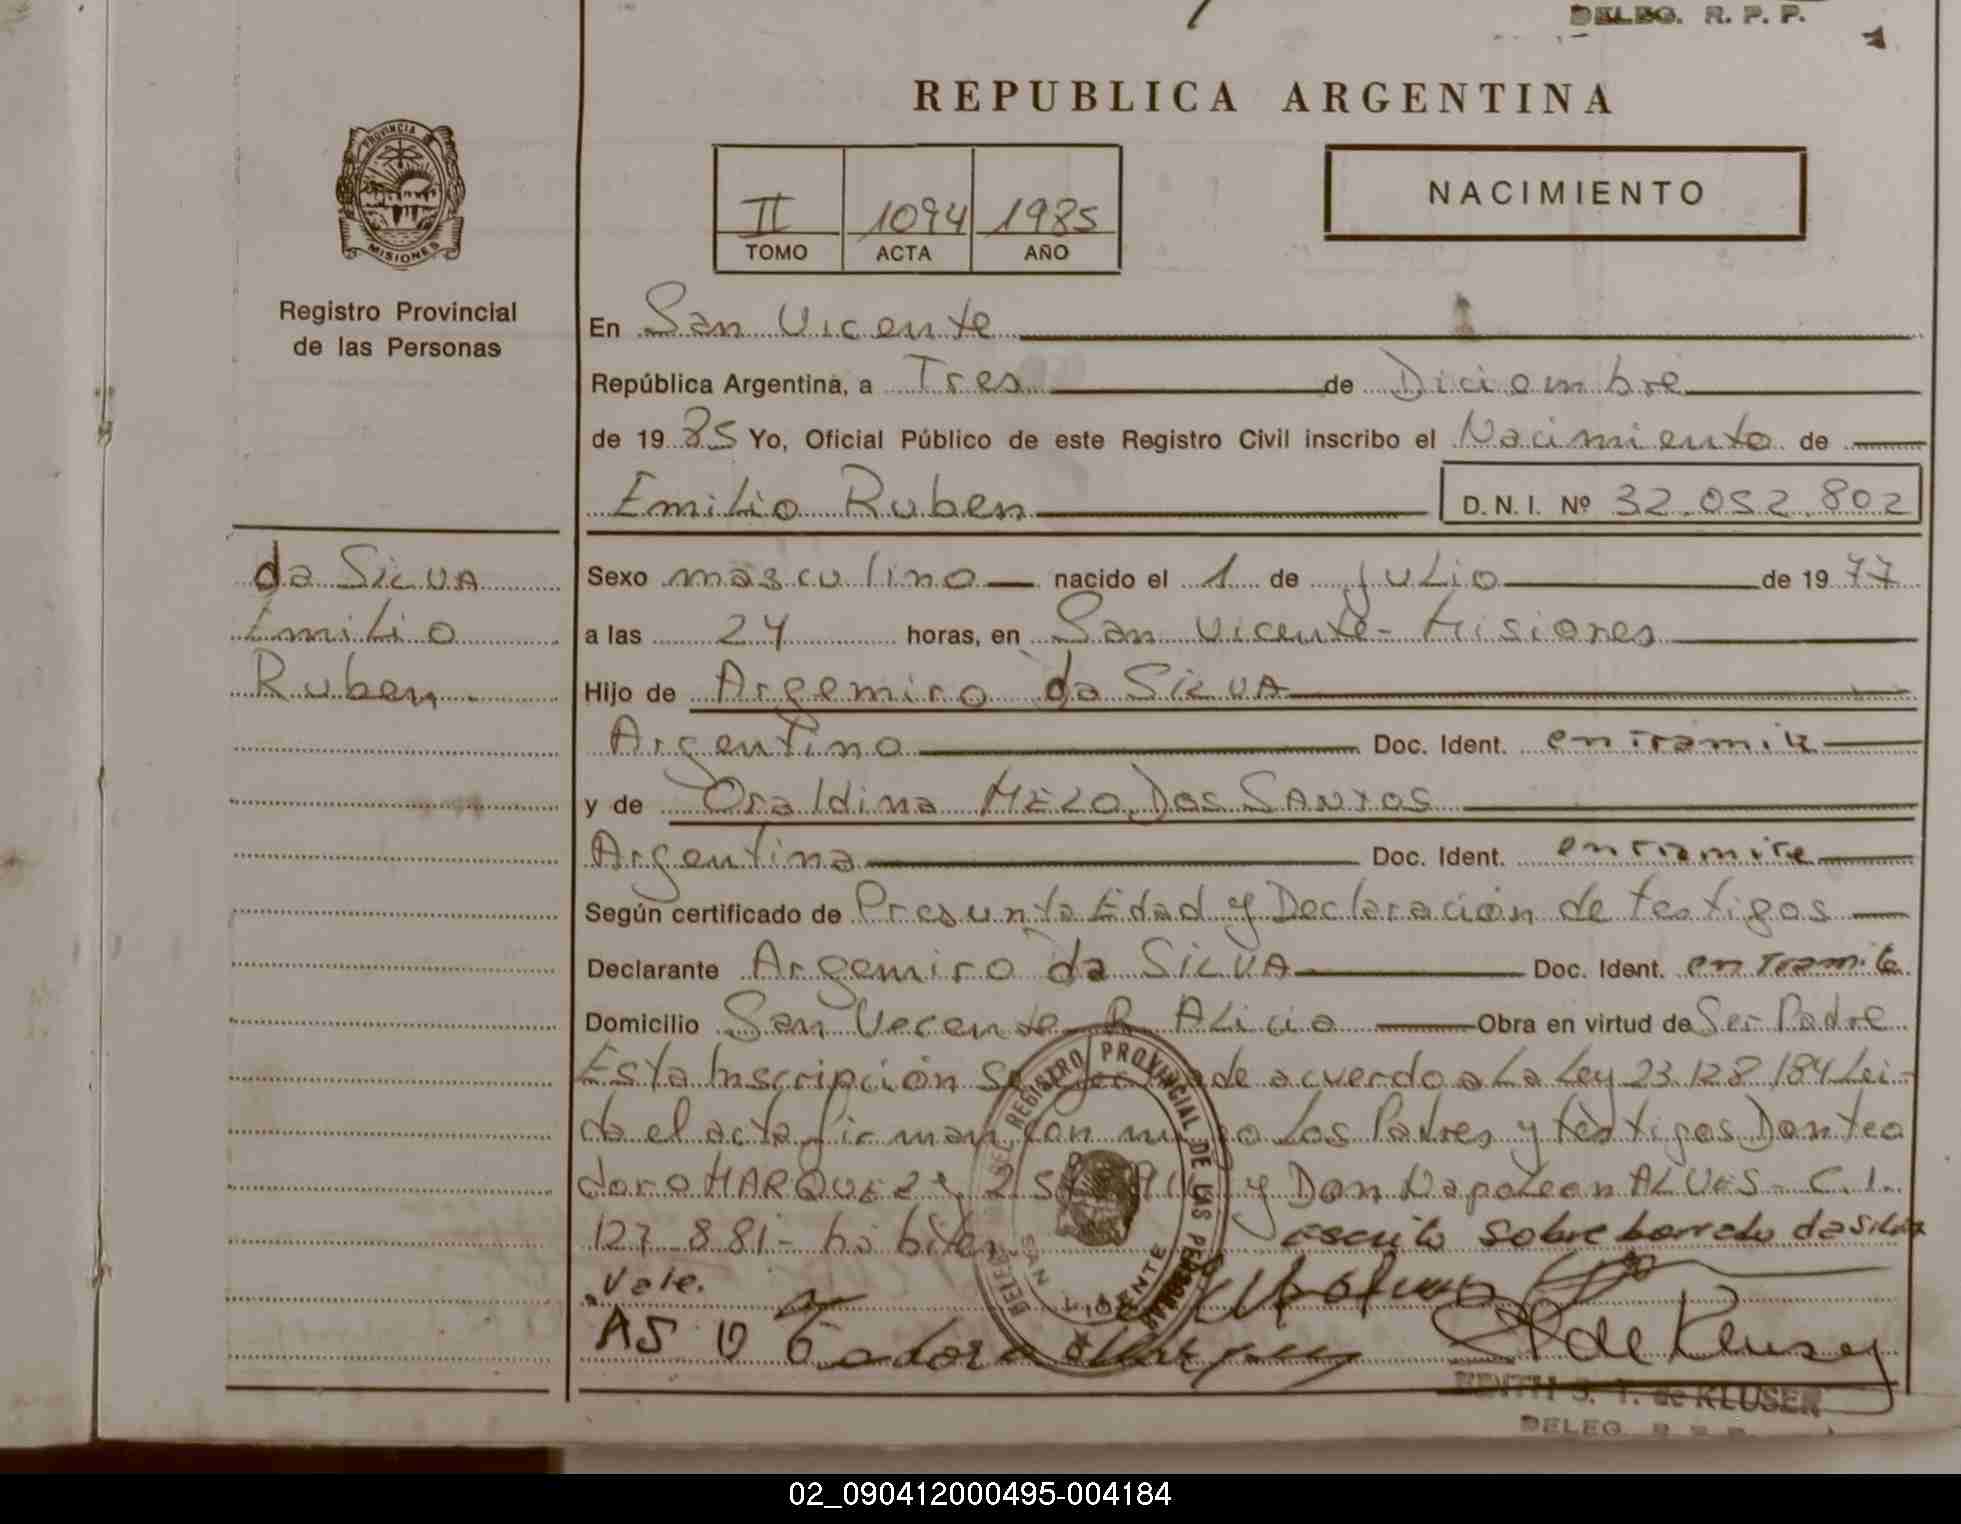 DELEG. R. P. P.
REPUBLICA ARGENTINA
PROVINCIA
MISIONES
Registro Provincial
de las Personas
II 1094 1985
TOMO ACTA AÑO
NACIMIENTO
En San Vicente
República Argentina, a Tres de Diciembre
de 19 85 Yo, Oficial Público de este Registro Civil inscribo el Nacimiento de
Emilio Ruben D. N. I. Nº 32.052.802
da SILVA
Emilio
Ruben
Sexo masculino nacido el 1 de julio de 19 77
a las 24 horas, en San Vicente - Misiones
Hijo de Argemiro da SILVA
Argentino Doc. Ident. en tramite
y de Oraldina MELO Dos SANTOS
Argentina Doc. Ident. en tramite
Según certificado de Presunta Edad y Declaración de testigos
Declarante Argemiro da SILVA Doc. Ident. en tramite
Domicilio San Vecente Alicia Obra en virtud de Ser Padre
Esta Inscripción de acuerdo a La Ley 23.128/84 Lei-
da el acta firman con Los Padres y testigos Don teo
doro MARQUEZ y Don Napoleon ALVES - C.I.
127.881- escrito sobre borrado da silva
Vale.
REGISTRO PROVINCIAL DE LAS PERSONAS
SAN VICENTE
S. T. de KLUSER
DELEG. R. P. P.
02_090412000495-004184